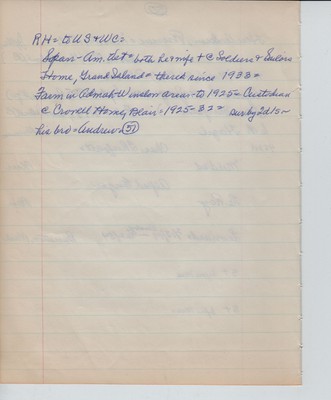 RH = to US & WC =
Span-Am. Vet = both he & wife + @ Soldiers & Sailors
Home, Grand Island = there since 1933 =
Farm in Admah-Winslow area = to 1925 = Custodian
@ Crowell Home, Blair = 1925-32 = Sur by 2d/s ~
his bro = Andrew. 51